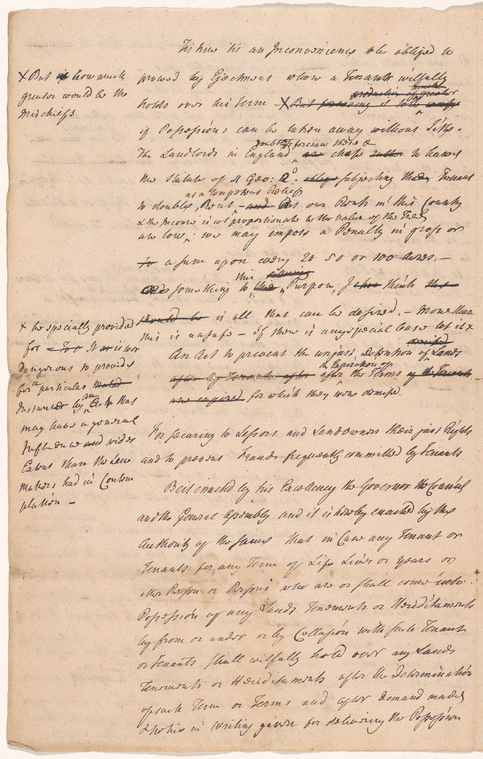 'Tis true 'tis an Inconvenience to be obliged to
proceed by Ejectment where a Tenant wilfully
holds over his Term X But
productive
if Possessions can be taken away without Title.
The Landlords in England chose to leave
doubtless foresaw this &
the Statute of 4 Geo: 2 subjecting Tenants
as a competent Relief
to double Rent as our Rents in this Country
& the Income is not proportionate to the value of the Fee
are low: we may impose a Penalty in gross or
a sum upon every 20 50 or 100 acres. —
something to this Purpose, I think
is all that can be desired. — More than
this is unsafe — If there is any special Case let it X
An Act to prevent the unjust Detention of Lands
after the Expiration of the Terms
for which they were demised.
X But how much
greater would be the
Mischiefs
X be specially provided
for — It is
dangerous to provide
for particular
Instances by an Act that
may have a general
Influence and wider
Extent than the Law
makers had in Contem
plation —
For securing to Lessors and Landowners their just Rights
and to prevent Frauds frequently committed by Tenants
Be it enacted by his Excellency the Governor the Council
and the General Assembly and it is hereby enacted by the
Authority of the same that in Case any Tenant or
Tenants for any Term of Life Lives or Years or
other Person or Persons who are or shall come into
Possession of any Lands Tenements or Hereditaments
by from or under or by Collusion with such Tenant
or Tenants shall wilfully hold over any Lands
Tenements or Hereditaments after the Determination
of such Term or Terms and after Demand made
& Notice in Writing given for delivering the Possession